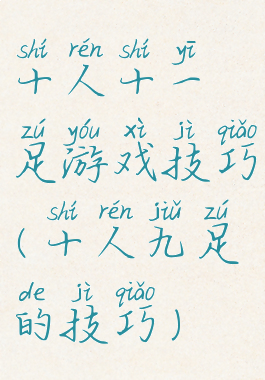 shí rén shí yī
十人十一
zú yóu xì jì qiǎo
足游戏技巧
shí rén jiǔ zú
(十人九足
de jì qiǎo
的技巧)